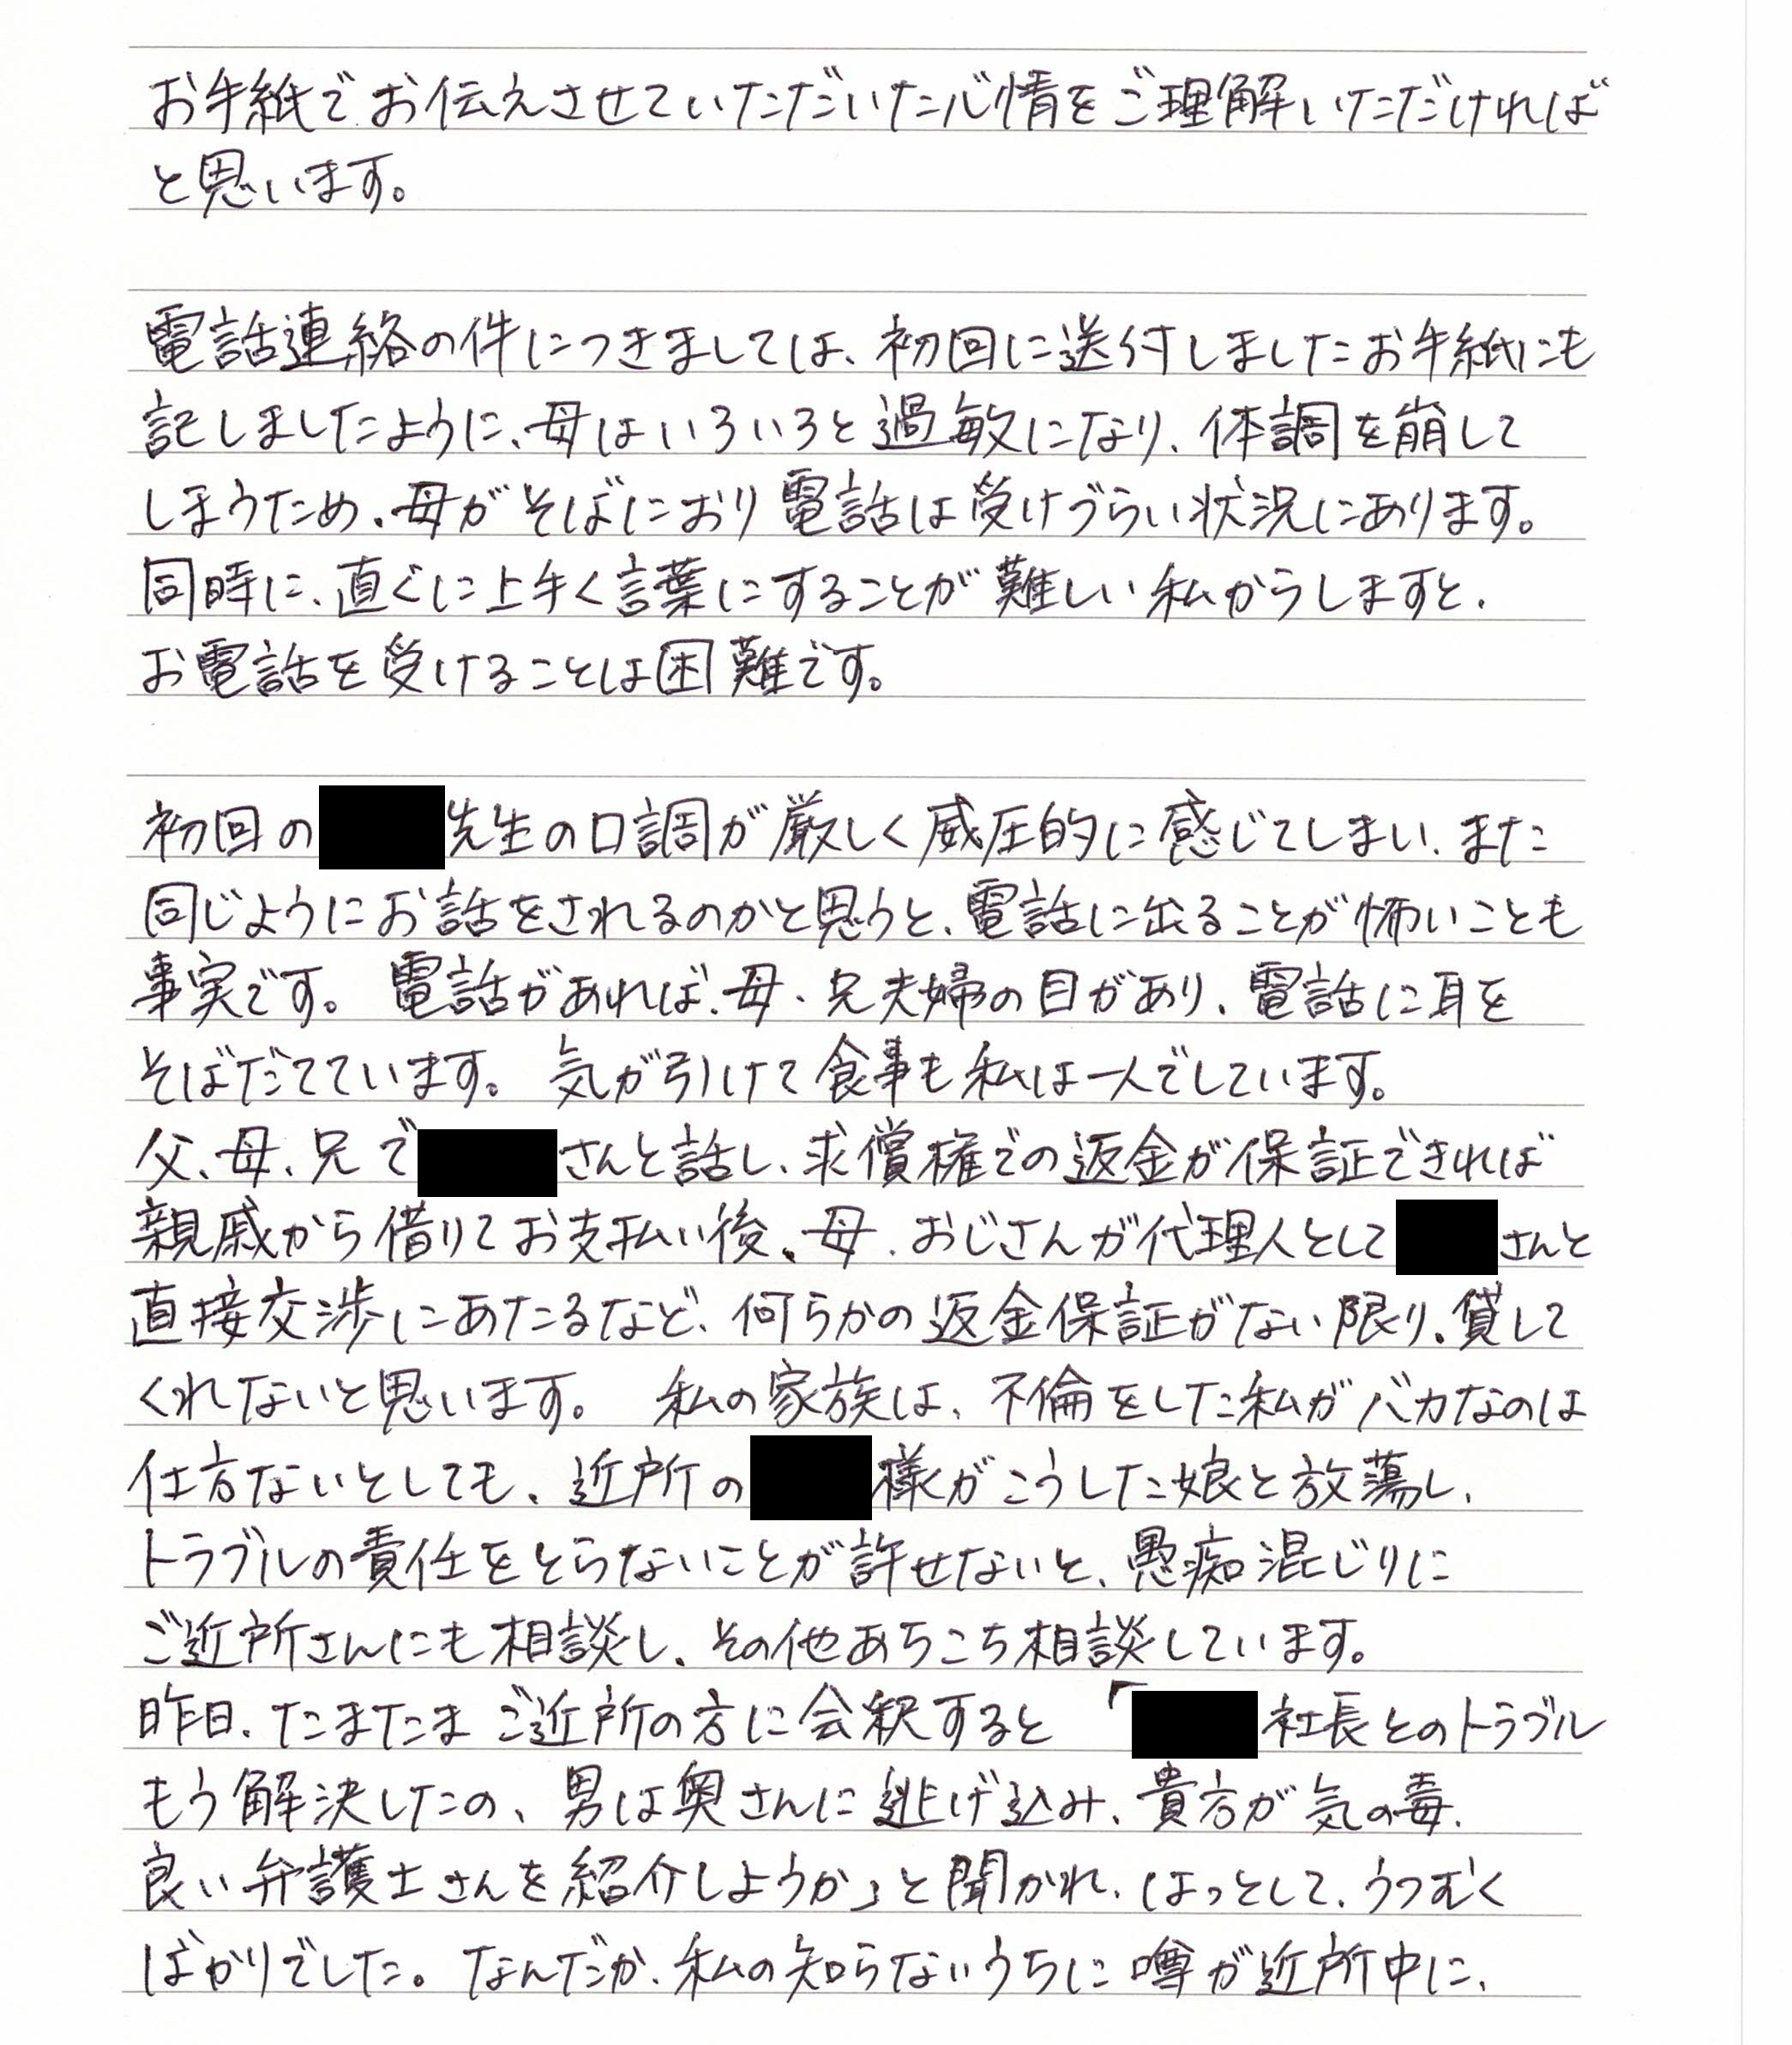 お手紙でお伝えさせていただいた心情をご理解いただければ
と思います。
電話連絡の件につきましては、初回に送付しましたお手紙にも
記しましたように、母はいろいろと過敏になり、体調を崩して
しまうため、母がそばにおり電話は受けづらい状況にあります。
同時に、直ぐに上手く言葉にすることが難しい私からしますと、
お電話を受けることは困難です。
初回の先生の口調が厳しく威圧的に感じてしまい、また
同じようにお話をされるのかと思うと、電話に出ることが怖いことも
事実です。電話があれば、母、兄夫婦の目があり、電話に耳を
そばだてています。気が引けて食事も私は一人でしています。
父、母、兄でさんと話し、求償権での返金が保証できれば
親戚から借りてお支払い後、母、おじさんが代理人としてさんと
直接交渉にあたるなど、何らかの返金保証がない限り、貸して
くれないと思います。私の家族は、不倫をした私がバカなのは
仕方ないとしても、近所の様がこうした娘と放蕩し、
トラブルの責任をとらないことが許せないと、愚痴混じりに
ご近所さんにも相談し、その他あちこち相談しています。
昨日、たまたまご近所の方に会釈すると「社長とのトラブル
もう解決したの、男は奥さんに逃げ込み、貴方が気の毒、
良い弁護士さんを紹介しようか」と聞かれ、はっとして、うつむく
ばかりでした。なんだか、私の知らないうちに噂が近所中に、